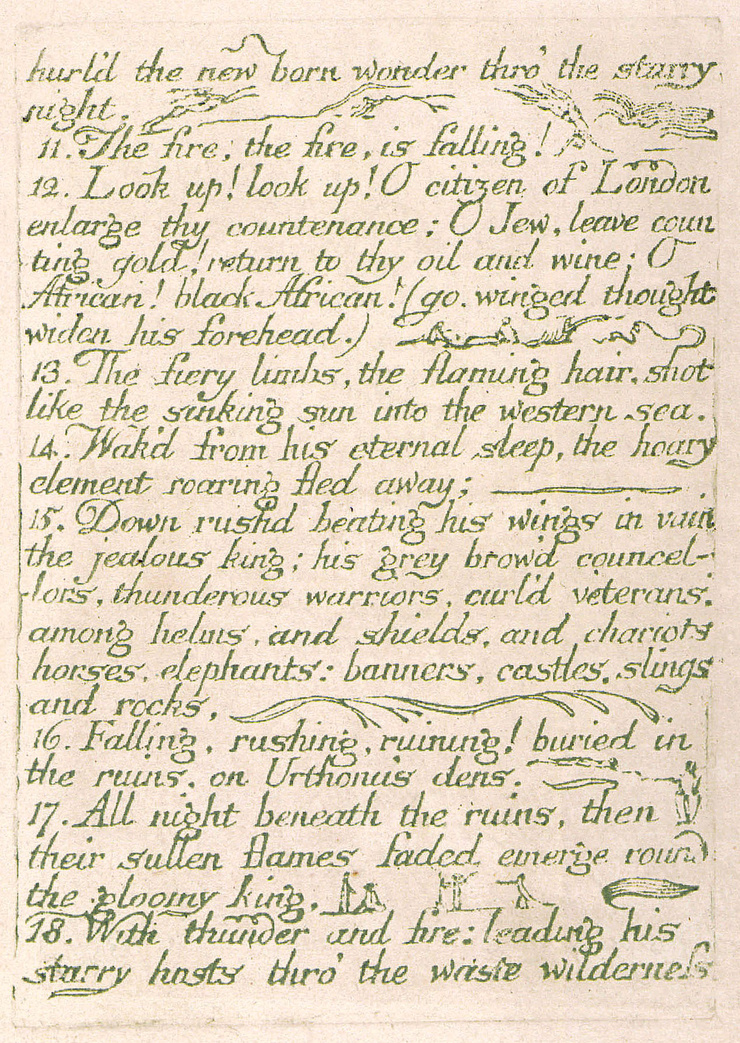 hurl'd the new born wonder thro' the starry
night.
11. The fire, the fire, is falling!
12. Look up! look up! O citizen of London
enlarge thy countenance; O Jew, leave coun
ting gold! return to thy oil and wine; O
African! black African! (go. winged thought
widen his forehead.)
13. The fiery limbs, the flaming hair, shot
like the sinking sun into the western sea.
14. Wak'd from his eternal sleep, the hoary
element roaring fled away;
15. Down rushd beating his wings in vain
the jealous king; his grey brow'd councel-
lors, thunderous warriors, curl'd veterans,
among helms, and shields, and chariots
horses, elephants: banners, castles, slings
and rocks,
16. Falling, rushing, ruining! buried in
the ruins, on Urthona's dens.
17. All night beneath the ruins, then
their sullen flames faded emerge round
the gloomy king,
18. With thunder and fire: leading his
starry hosts thro' the waste wilderness